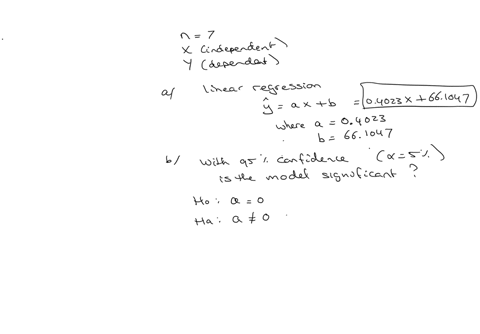 n = 7
X (independent)
Y (dependent)
a/ linear regression
ŷ = ax + b = 0.4023x + 66.1047
where a = 0.4023
b = 66.1047
b/ with 95% confidence (α = 5%)
is the model significant ?
Ho: a = 0
Ha: a ≠ 0